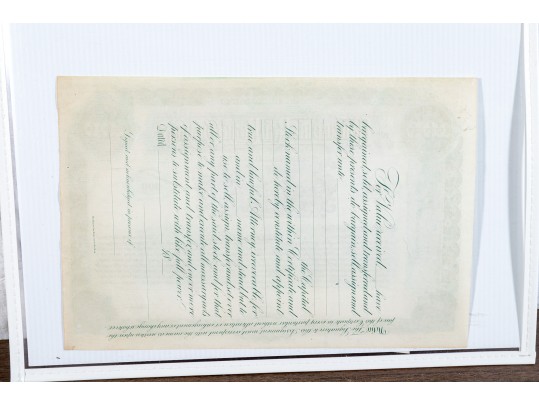 For Value received have
bargained, sold, assigned and transferred and
by these presents do bargain, sell, assign and
transfer unto
the Capital
Stock named in the within Certificate and
do hereby constitute and appoint
true and lawful Attorney irrevocable for
and in name and stead but to
use to sell, assign, transfer and set over
all or any part of the said stock and for that
purpose to make and execute all necessary acts
of assignment and transfer and one or more
persons to substitute with like full power.
Dated 18
Signed and acknowledged in presence of
Note. The Signature to this Assignment must correspond with the name as written upon the
face of the Certificate in every particular without alteration or enlargement or any change whatever.